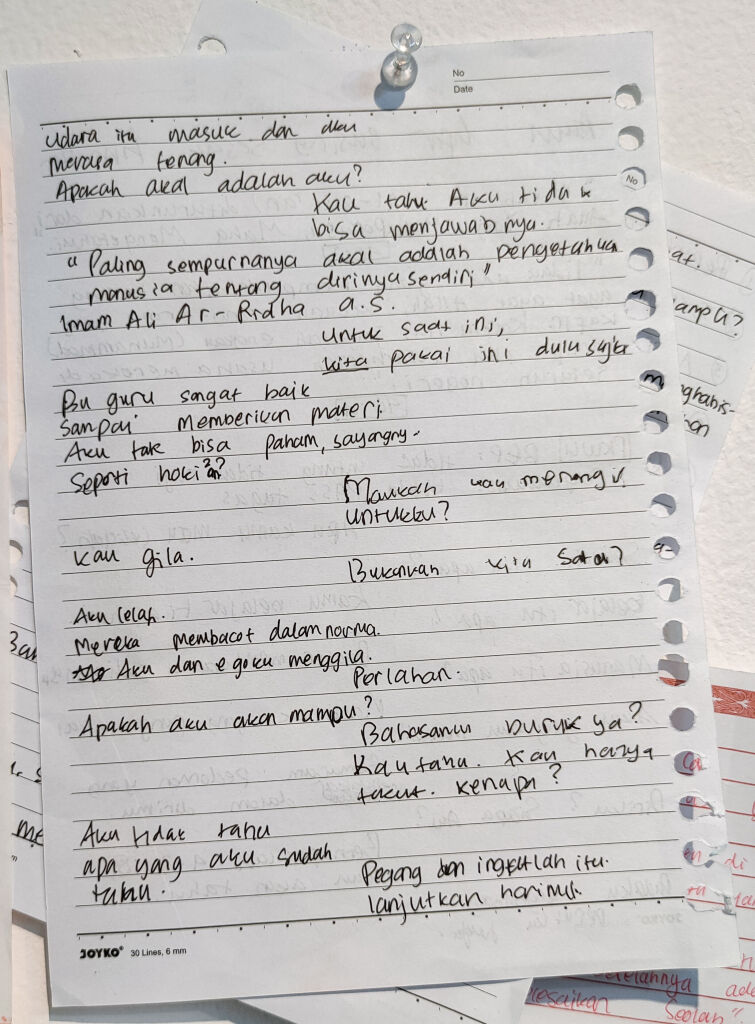 No
Date
udara itu masuk dan aku
merasa tenang.
Apakah akal adalah aku?
Kau tahu Aku tidak
bisa menjawabnya.
"Paling sempurnanya akal adalah pengetahuan
manusia tentang dirinya sendiri"
Imam Ali Ar-Ridha a.s.
untuk saat ini,
kita pakai ini dulu saja
Bu guru sangat baik
sampai memberikan materi
Aku tak bisa paham, sayangny-
Seperti hoki
Maukah kau menangis
untukku?
Kau gila.
Bukankah kita satu?
Aku lelah.
Mereka membacot dalam norma.
Aku dan egoku menggila.
Perlahan.
Apakah aku akan mampu?
Bahasamu buruk ya?
Kau tahu. Kau hanya
takut. Kenapa?
Aku tidak tahu
apa yang aku sudah
tahu.
Pegang dan ingatlah itu.
lanjutkan harimu.
JOYKO® 30 Lines, 6 mm
No
at.
ampu?
nghabis-
di
Seolah"